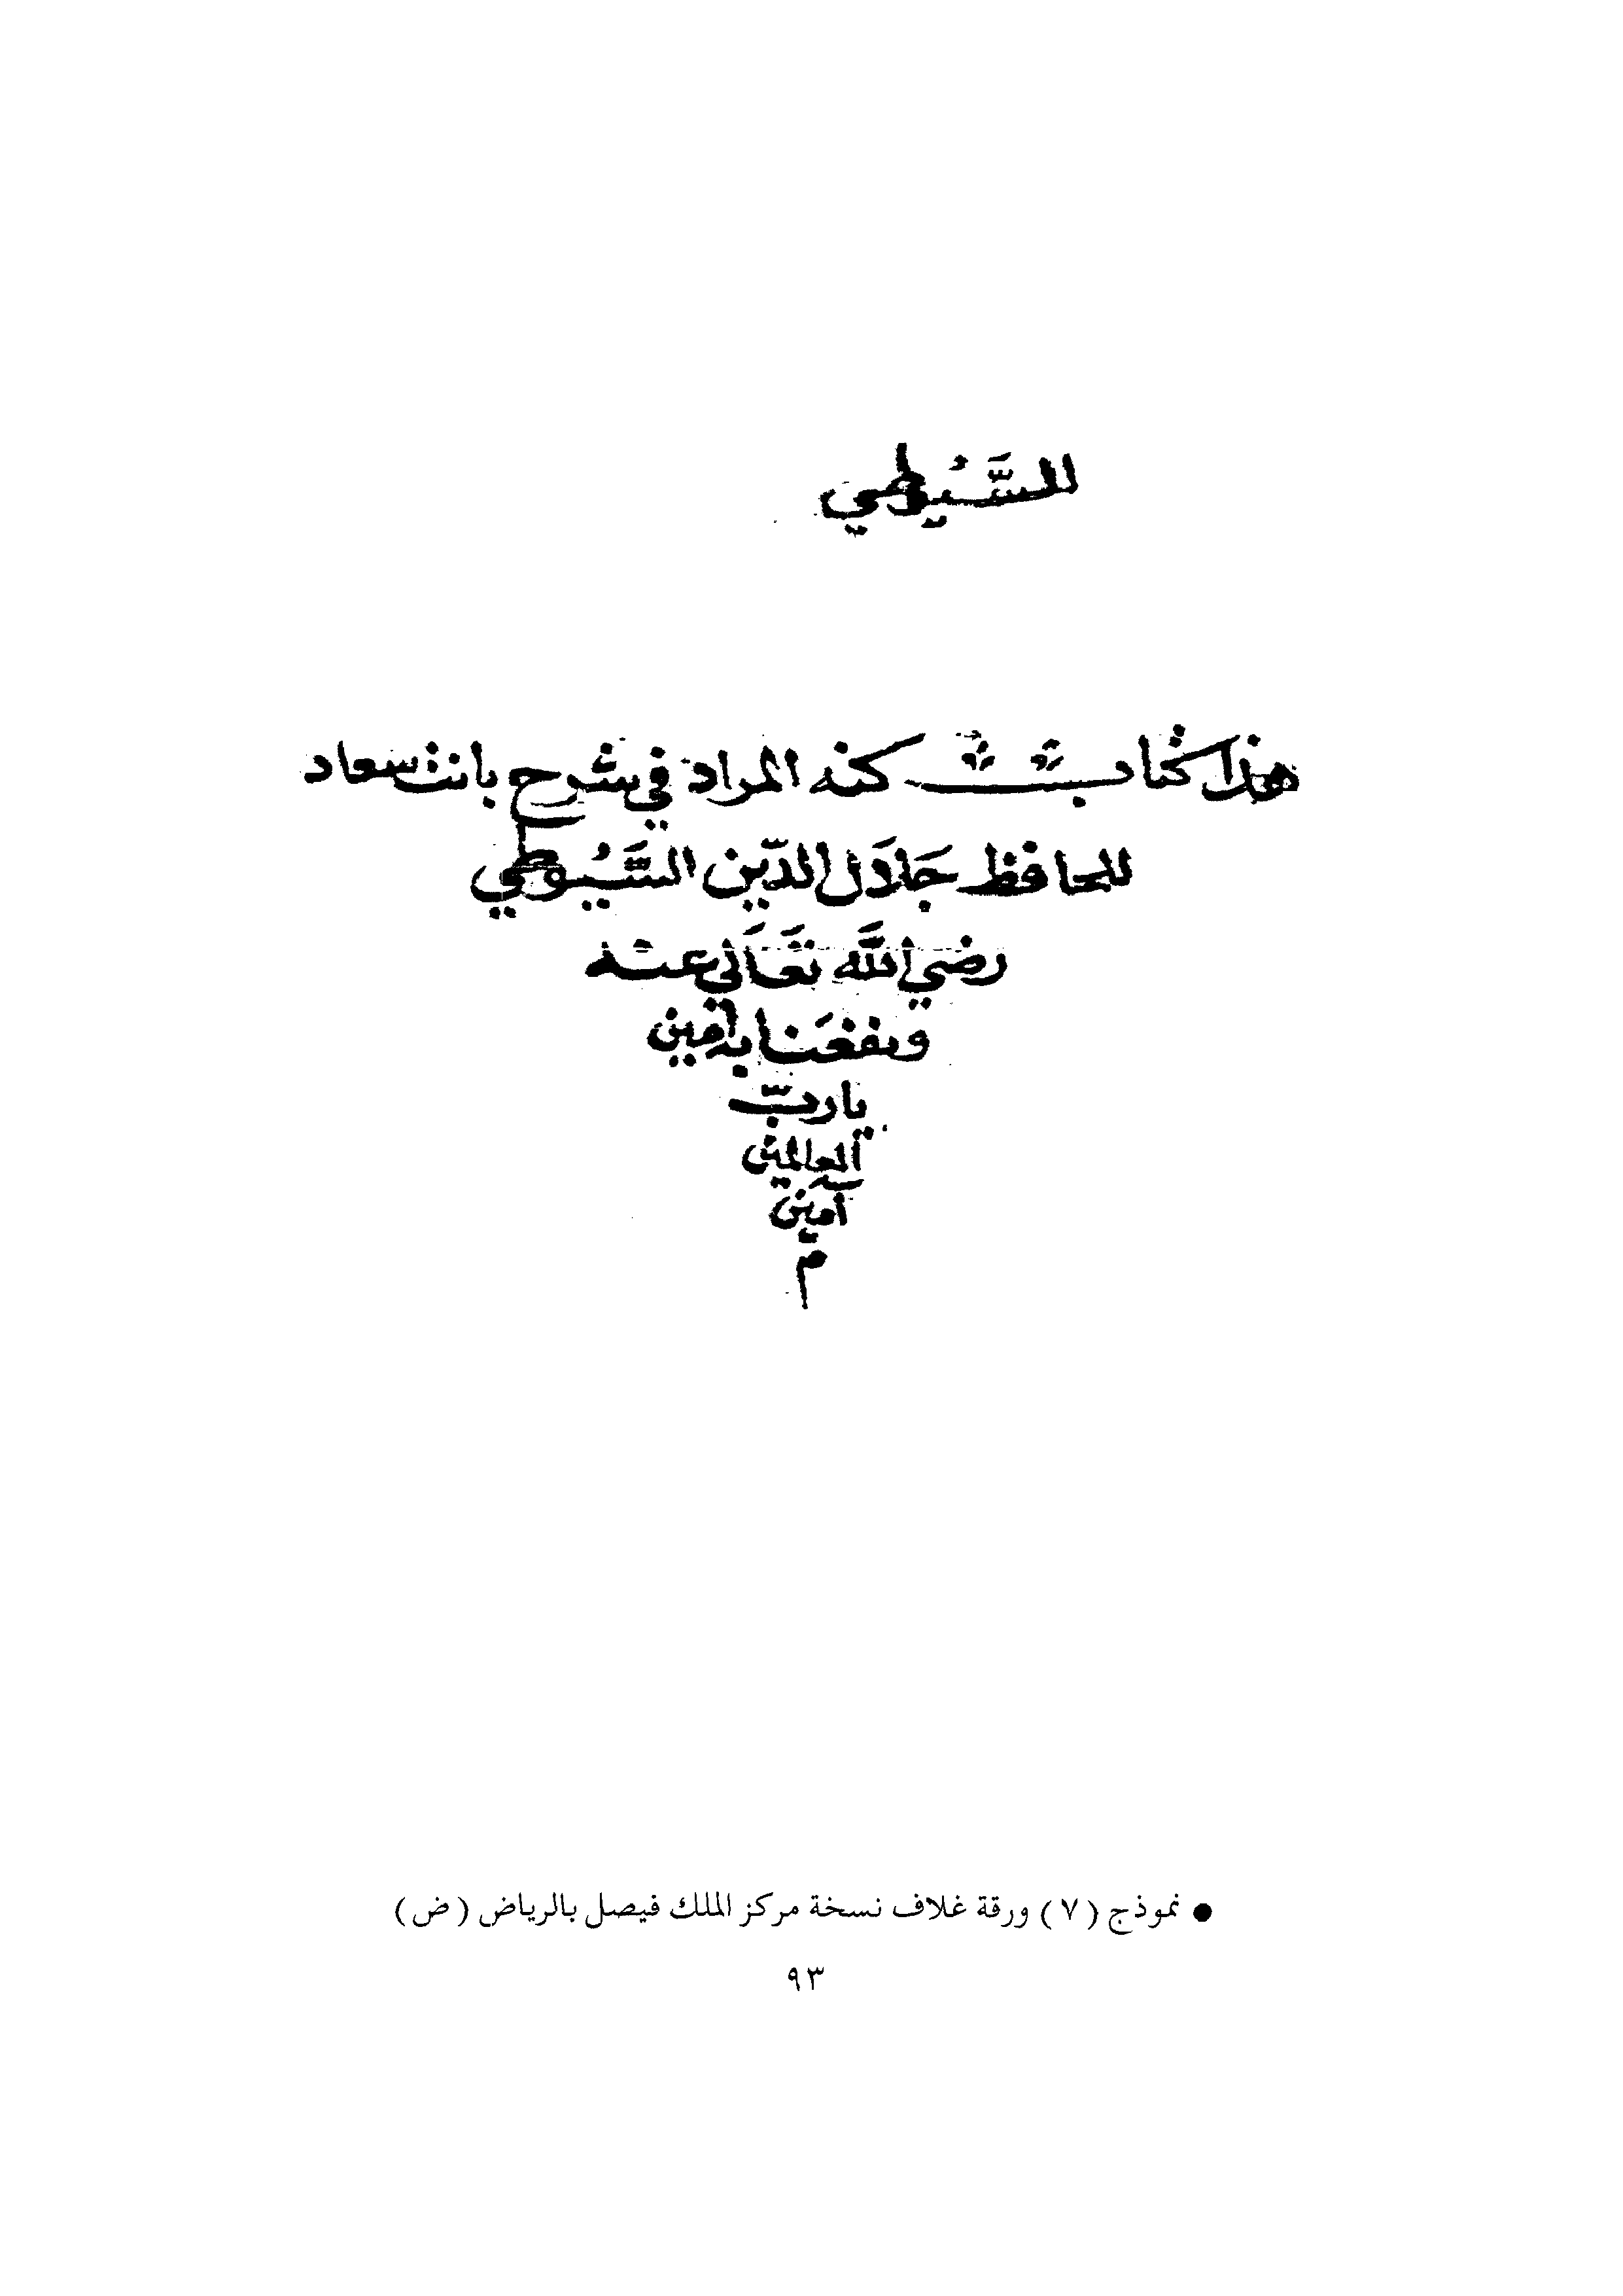 للسَّيُوطي
هذا كتاب كنه المراد في شرح بانت سعاد
للحافظ جَلَال الدّين السَّيُوطي
رضي اللَّه تَعَالى عنه
ونفعَنا به آمين
يا ربّ
العالمين
آمين
م
● نموذج (٧) ورقة غلاف نسخة مركز الملك فيصل بالرياض (ض)
٩٣